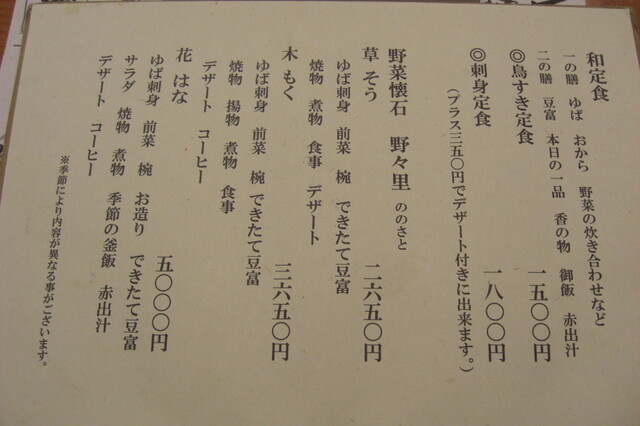 和定食
一の膳 ゆば おから 野菜の炊き合わせなど
二の膳 豆富 本日の一品 香の物 御飯 赤出汁
◎鳥すき定食 一五〇〇円
◎刺身定食 一八〇〇円
(プラス三五〇円でデザート付きに出来ます。)
野菜懐石 野々里 ののさと
草 そう 二六五〇円
ゆば刺身 前菜 椀 できたて豆富
焼物 煮物 食事 デザート
木 もく 三六五〇円
ゆば刺身 前菜 椀 できたて豆富
焼物 揚物 煮物 食事
デザート コーヒー
花 はな 五〇〇〇円
ゆば刺身 前菜 椀 お造り できたて豆富
サラダ 焼物 煮物 季節の釜飯 赤出汁
デザート コーヒー
※季節により内容が異なる事がございます。